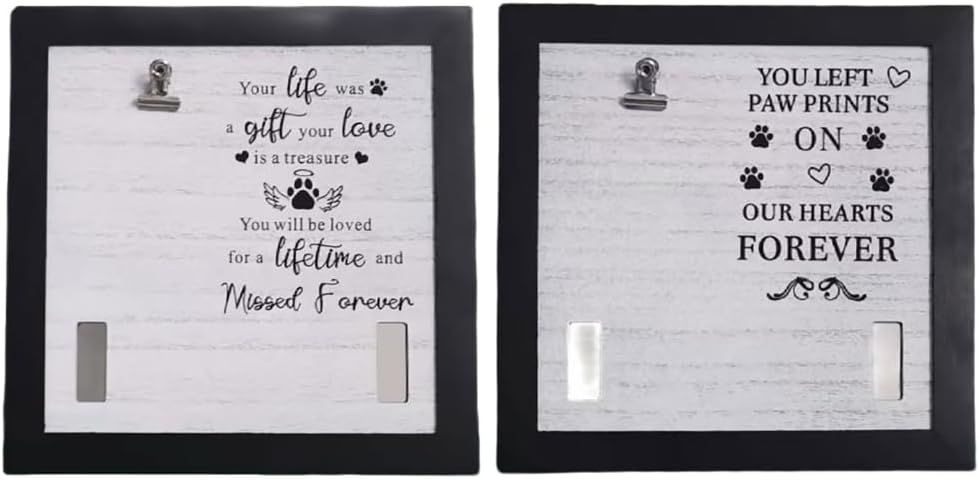 Your life was
a gift your love
is a treasure
You will be loved
for a lifetime and
Missed Forever
YOU LEFT
PAW PRINTS
ON
OUR HEARTS
FOREVER